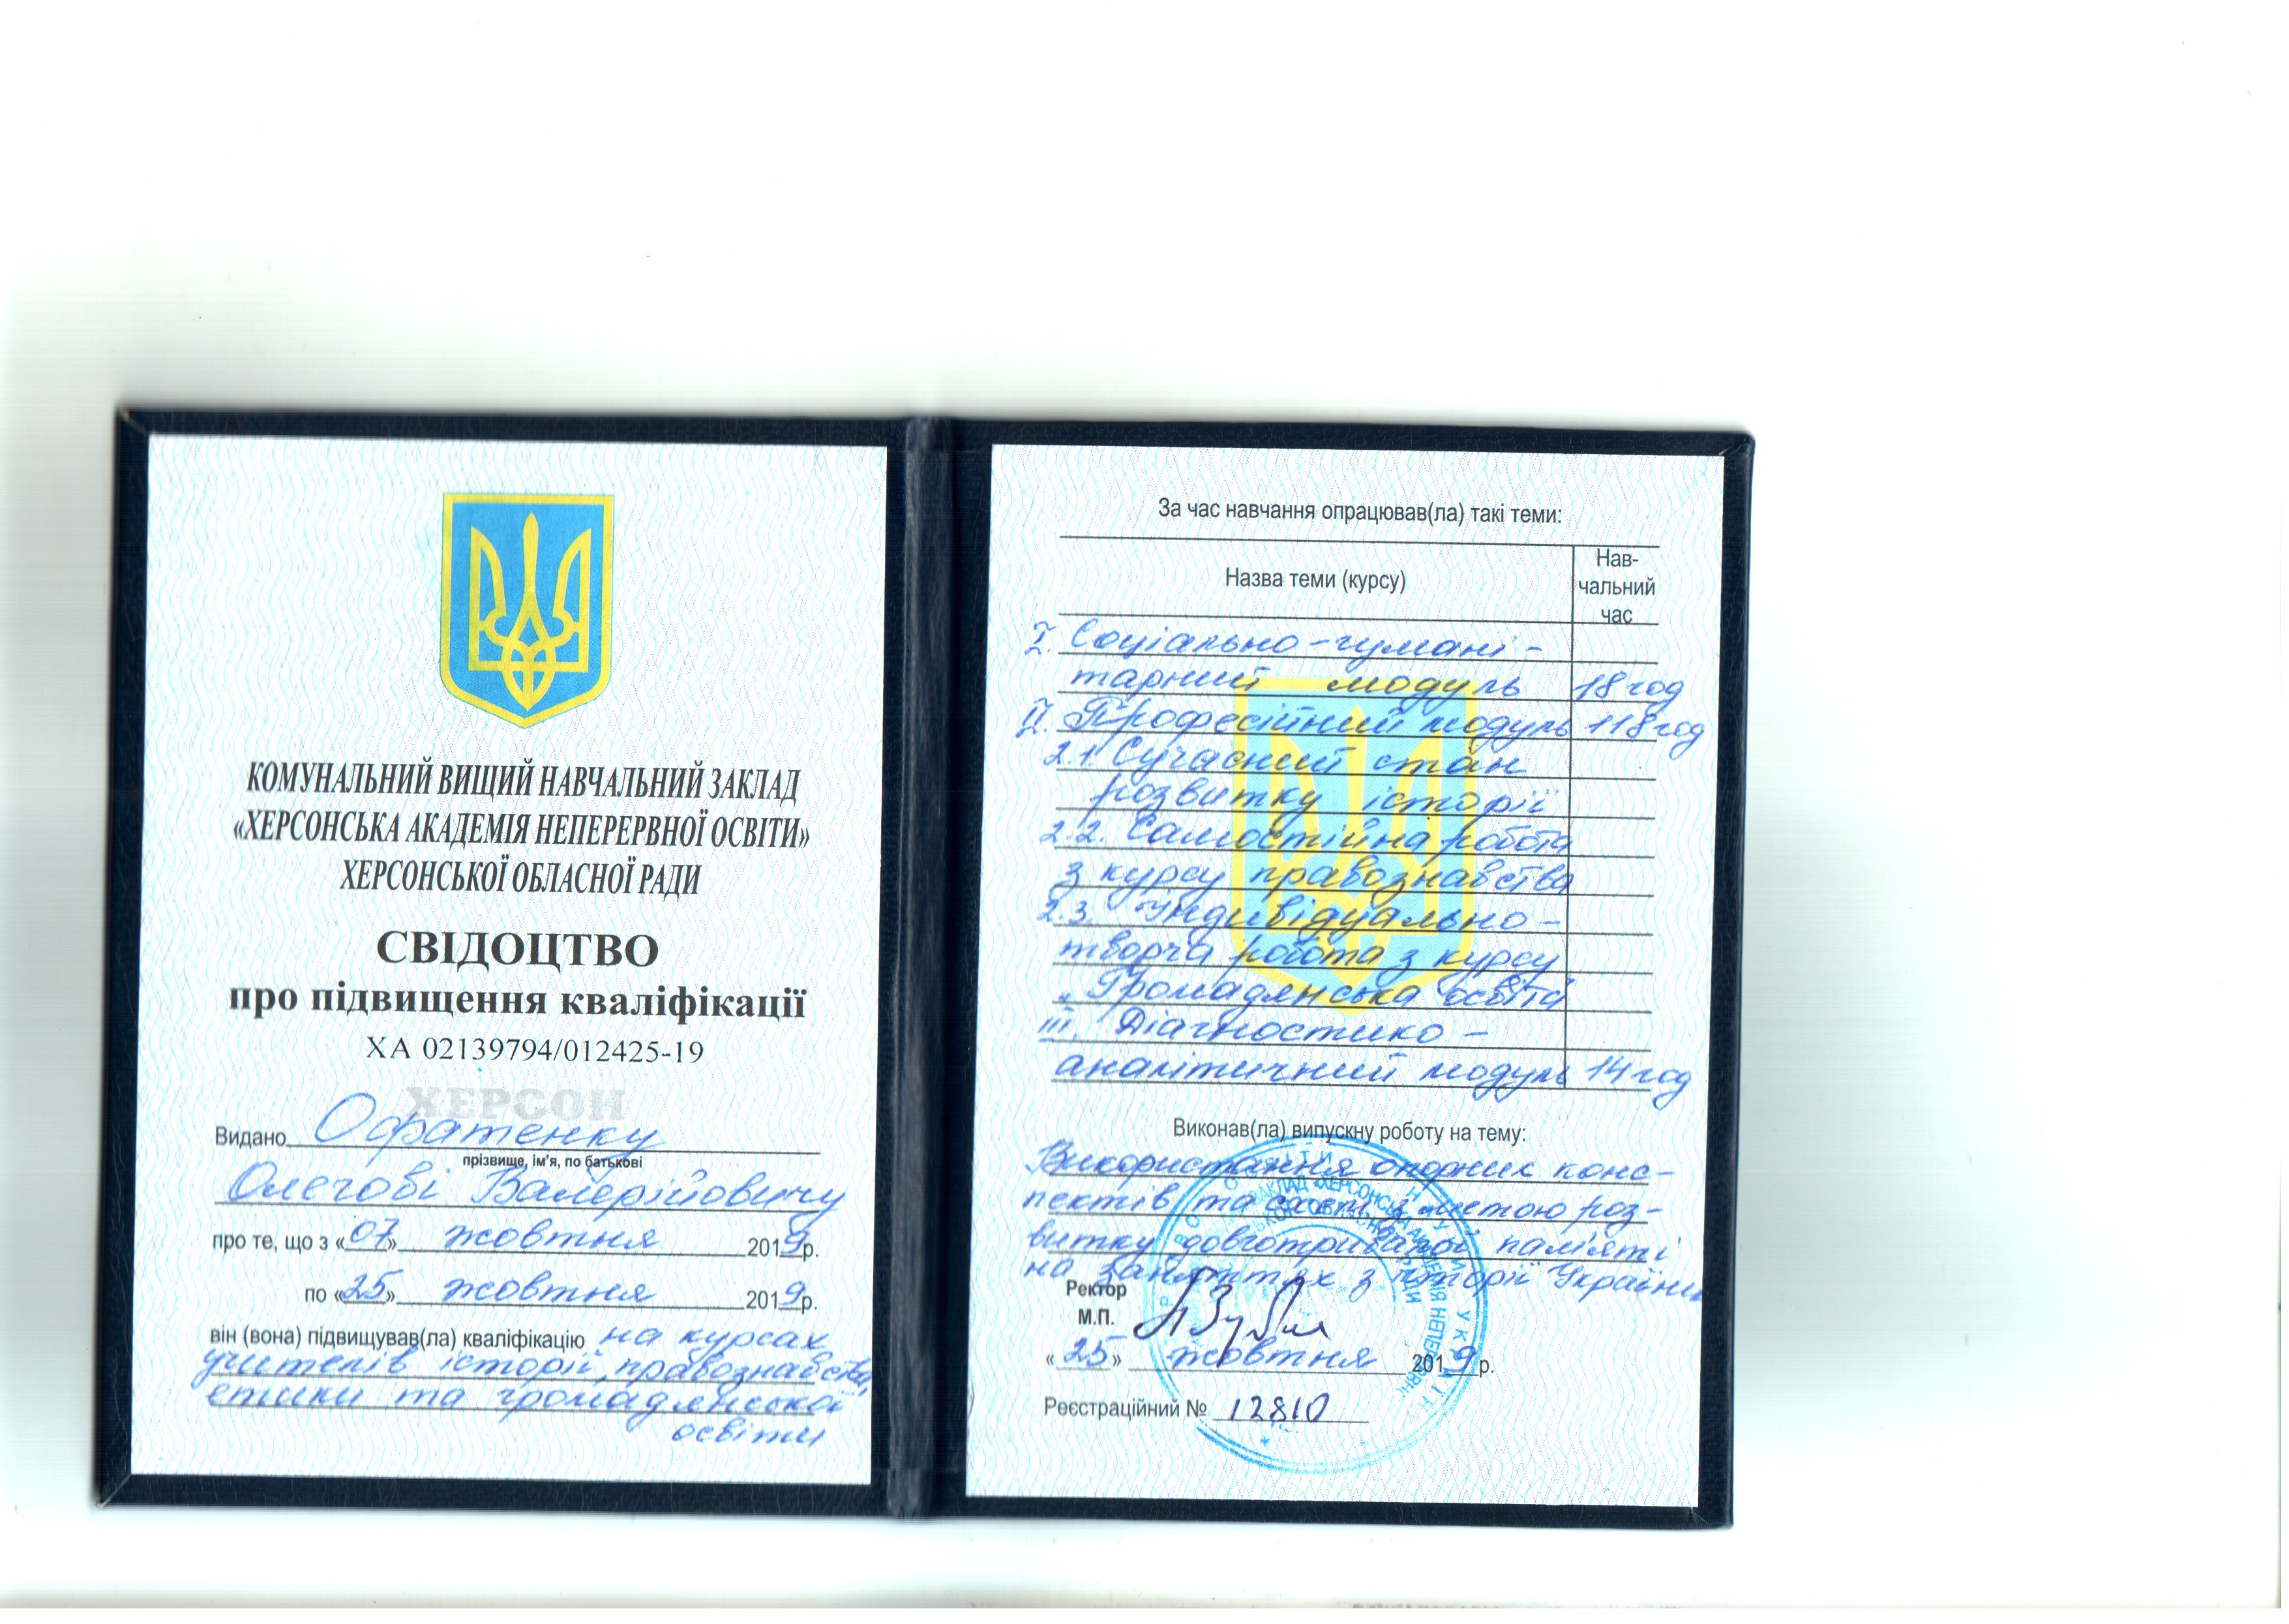 КОМУНАЛЬНИЙ ВИЩИЙ НАВЧАЛЬНИЙ ЗАКЛАД
«ХЕРСОНСЬКА АКАДЕМІЯ НЕПЕРЕРВНОЇ ОСВІТИ»
ХЕРСОНСЬКОЇ ОБЛАСНОЇ РАДИ
СВІДОЦТВО
про підвищення кваліфікації
ХА 02139794/012425-19
ХЕРСОН
Видано Офатенку
прізвище, ім'я, по батькові
Олегові Валерійовичу
про те, що з «07» жовтня 2019р.
по «25» жовтня 2019р.
він (вона) підвищував(ла) кваліфікацію на курсах
учителів історії, правознавства,
етики та громадянської
освіти
За час навчання опрацював(ла) такі теми:
Назва теми (курсу) Нав-
чальний
час
I. Соціально-гумані-
тарний модуль 18 год
II. Професійний модуль 118 год
2.1. Сучасний стан
розвитку історії
2.2. Самостійна робота
з курсу правознавства
2.3. Індивідуально-
творча робота з курсу
„Громадянська освіта"
III. Діагностико-
аналітичний модуль 14 год
Виконав(ла) випускну роботу на тему:
Використання опорних конс-
пектів та схем з метою роз-
витку довготривалої пам'яті
на заняттях з історії України
Ректор
М.П.
«25» жовтня 2019р.
Реєстраційний № 12810